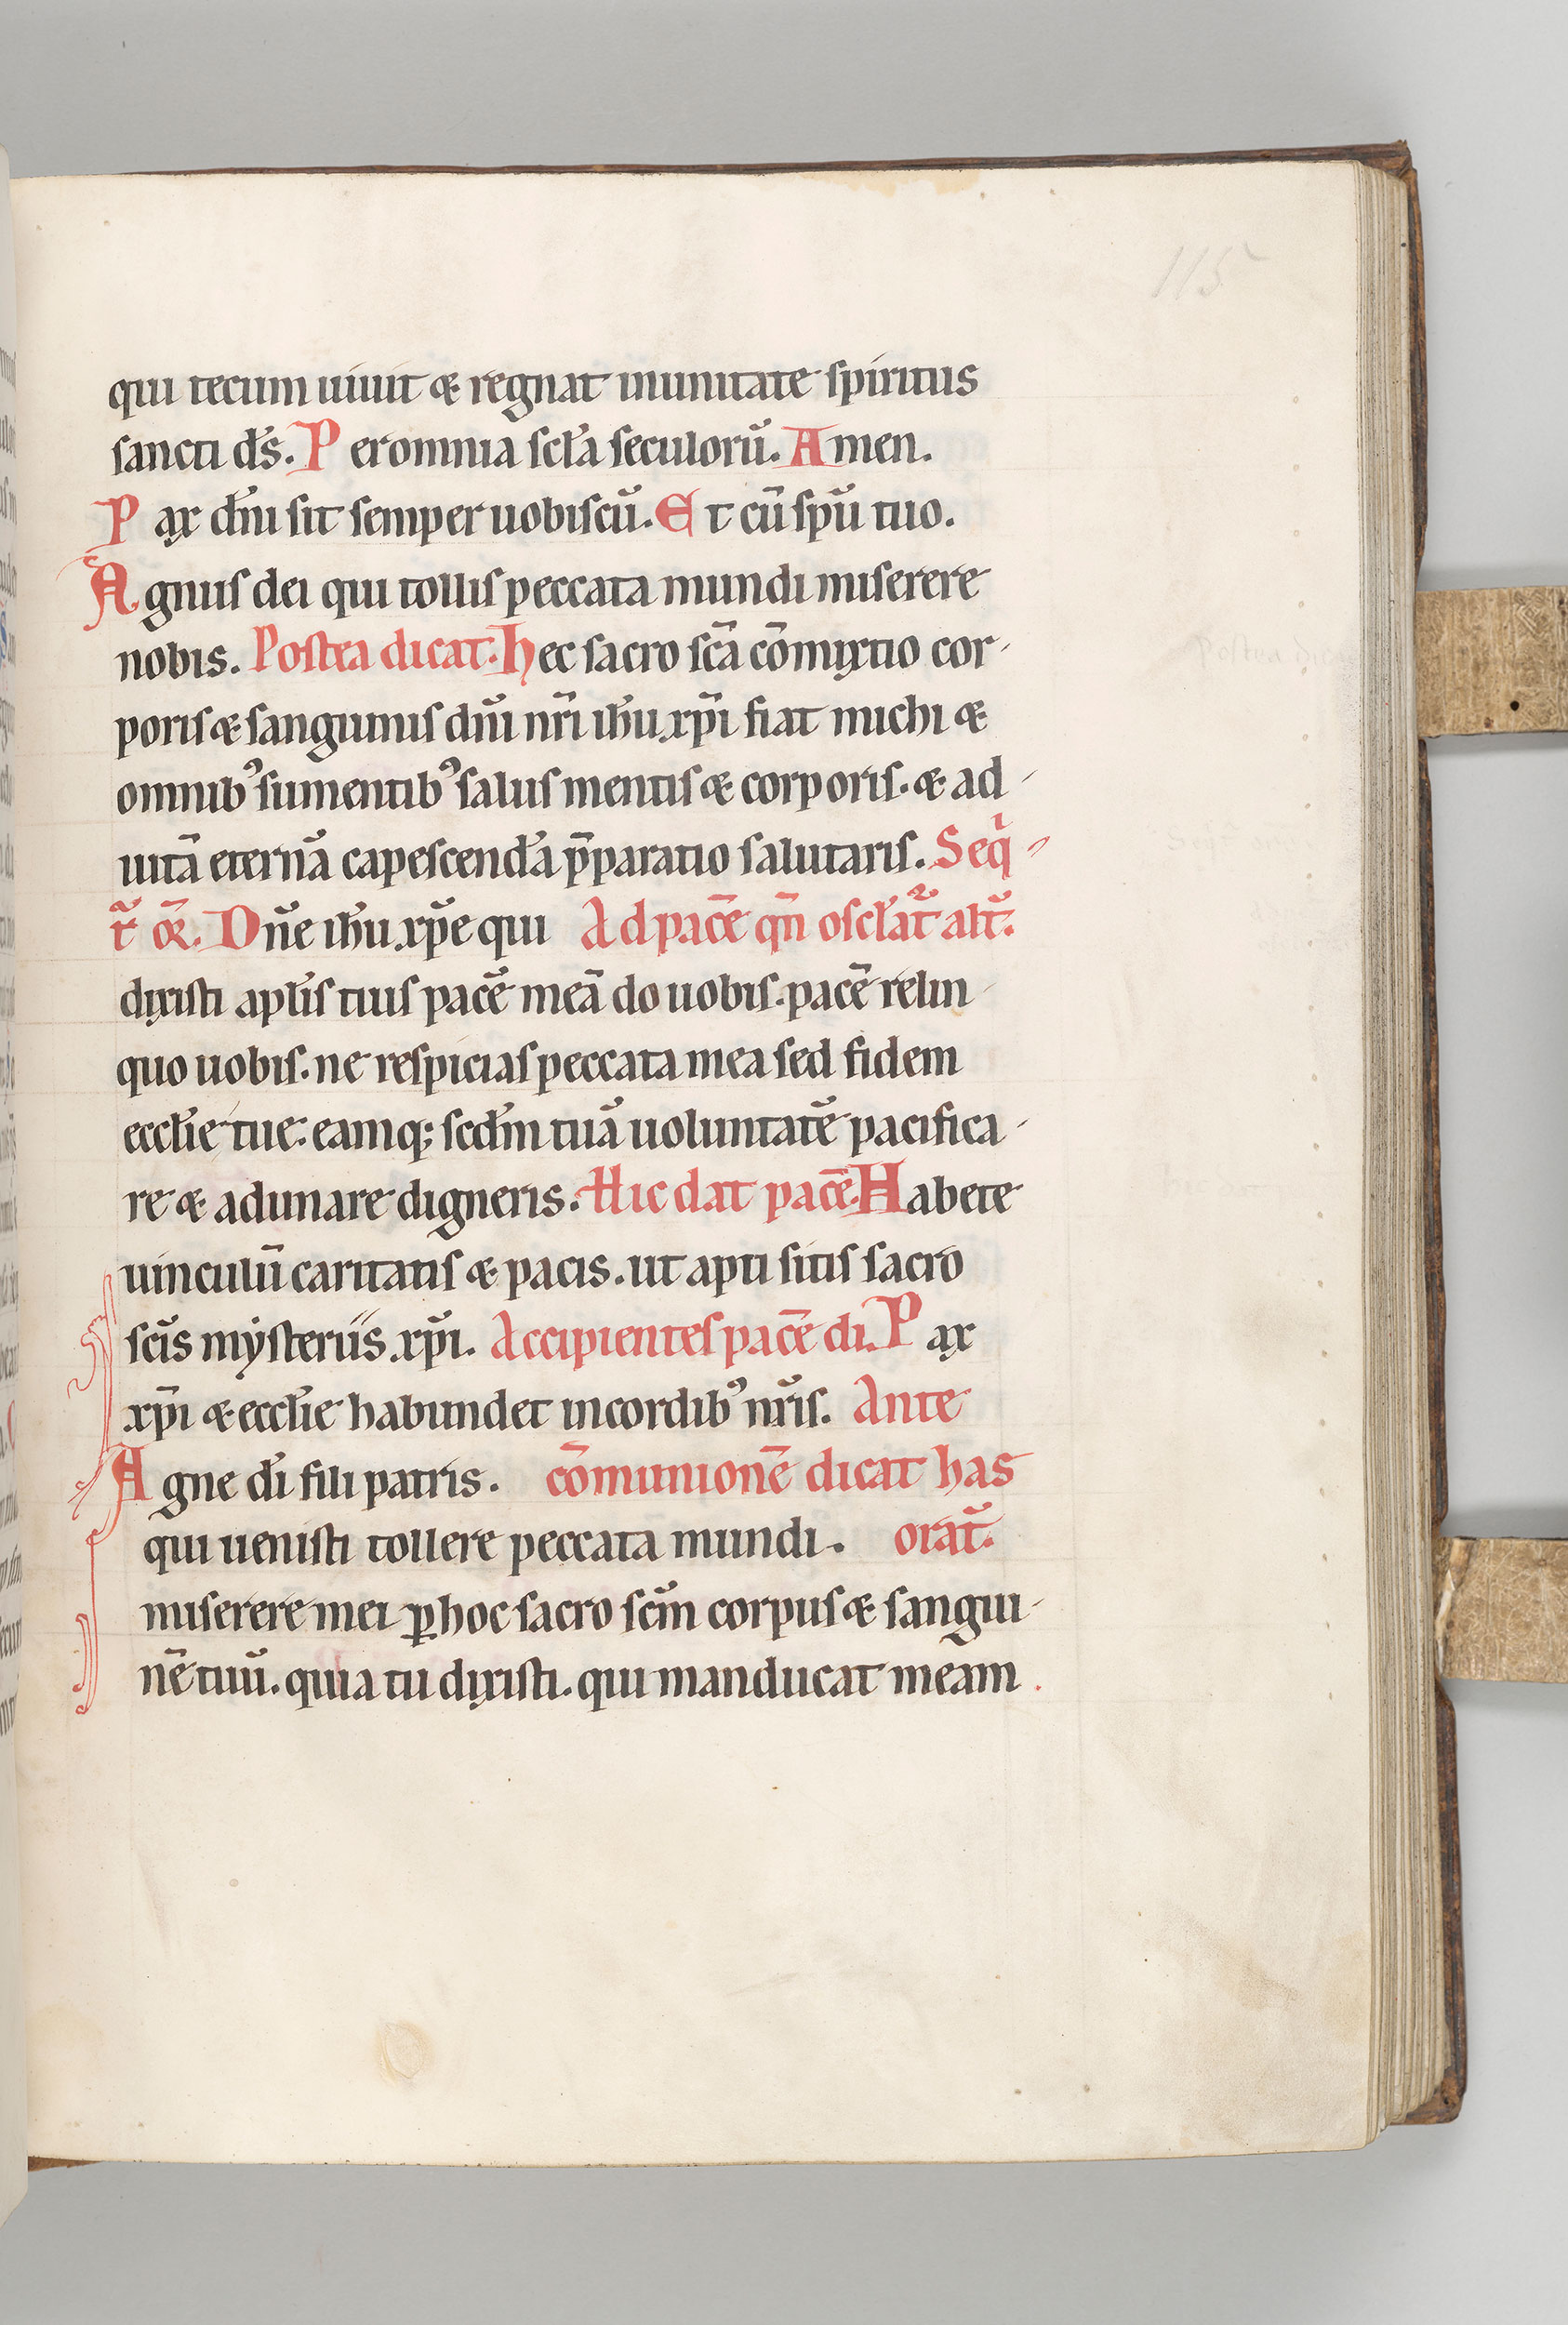 115
qui tecum uiuit & regnat inunitate spiritus
sancti d̅s. Per omnia sc̅la seculoru̅. Amen.
Pax dn̅i sit semper uobiscu̅. Et cu̅ spu̅ tuo.
Agnus dei qui tollis peccata mundi miserere
nobis. Postea dicat. hec sacro sc̅a co̅mixtio cor-
poris & sanguinis dn̅i nr̅i ih̅u xp̅i fiat michi &
omnib' sumentib' salus mentis & corporis. & ad
uita̅ eterna̅ capescenda̅ p̅paratio salutaris. Seq̅-
t̅ or̅. Dn̅e ih̅u xp̅e qui Ad pace̅ qn̅ oscl̅at̅ alt̅.
dixisti apl̅is tuis pace̅ mea̅ do uobis. pace̅ relin
quo uobis. ne respicias peccata mea sed fidem
eccl̅ie tue. eamq; scd̅m tua̅ uoluntate̅ pacifica-
re & adunare digneris. Hic dat pace̅. Habete
uinculu̅ caritatis & pacis. ut apti sitis sacro
sc̅is mysteriis xp̅i. Accipientes pace̅ di. Pax
xp̅i & eccl̅ie habundet in cordib' nr̅is. Ante
Agne d̅i fili patris. co̅munione̅ dicat has
qui uenisti tollere peccata mundi. orat̅.
miserere mei p̱ hoc sacro sc̅m corpus & sangui-
ne̅ tuu̅. quia tu dixisti. qui manducat meam